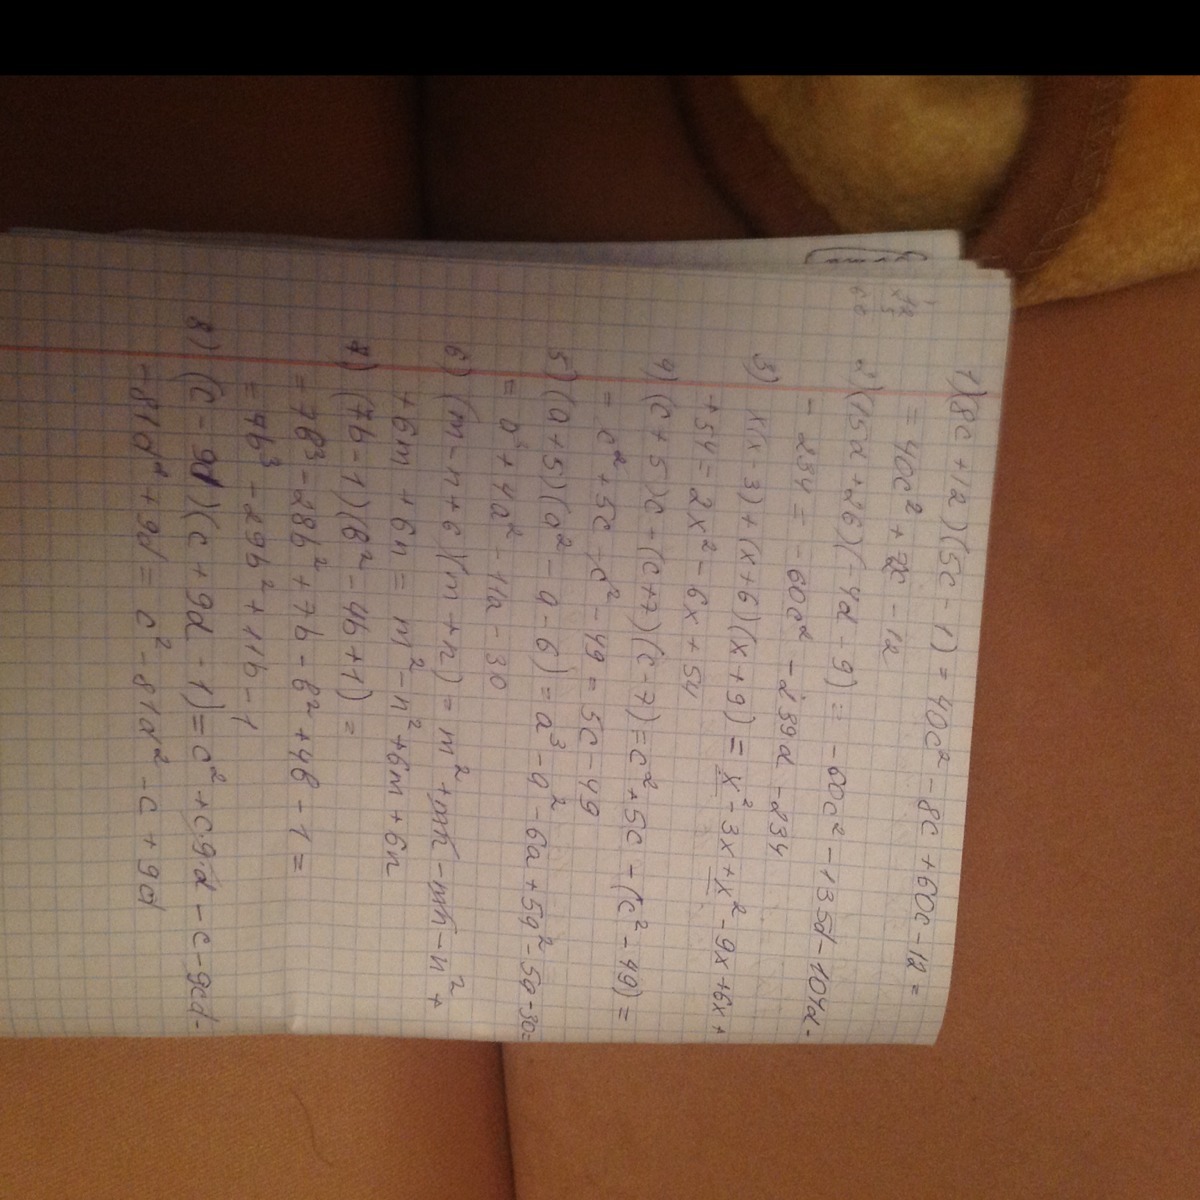 1)(8c+12)(5c-1)=40c²-8c+60c-12=
=40c²+ -12
2)(15d+26)(-4d-9)=-60d²-135d-104d-
-234=-60d²-239d-234
3) x(x-3)+(x+6)(x+9)=x²-3x+x²-9x+6x+
+54=2x²-6x+54
4)(c+5)c-(c+7)(c-7)=c²+5c-(c²-49)=
=c²+5c-c²-49=5c-49
5)(a+5)(a²-a-6)=a³-a²-6a+5a²-5a-30=
=a³+4a²-11a-30
6)(m-n+6)(m+n)=m²+mn-mn-n²+
+6m+6n=m²-n²+6m+6n
7)(7b-1)(b²-4b+1)=
=7b³-28b²+7b-b²+4b-1=
=7b³-29b²+11b-1
8)(c-9d)(c+9d-1)=c²+c9d-c-9cd-
-81d²+9d=c²-81d²-c+9d
12
×5
60